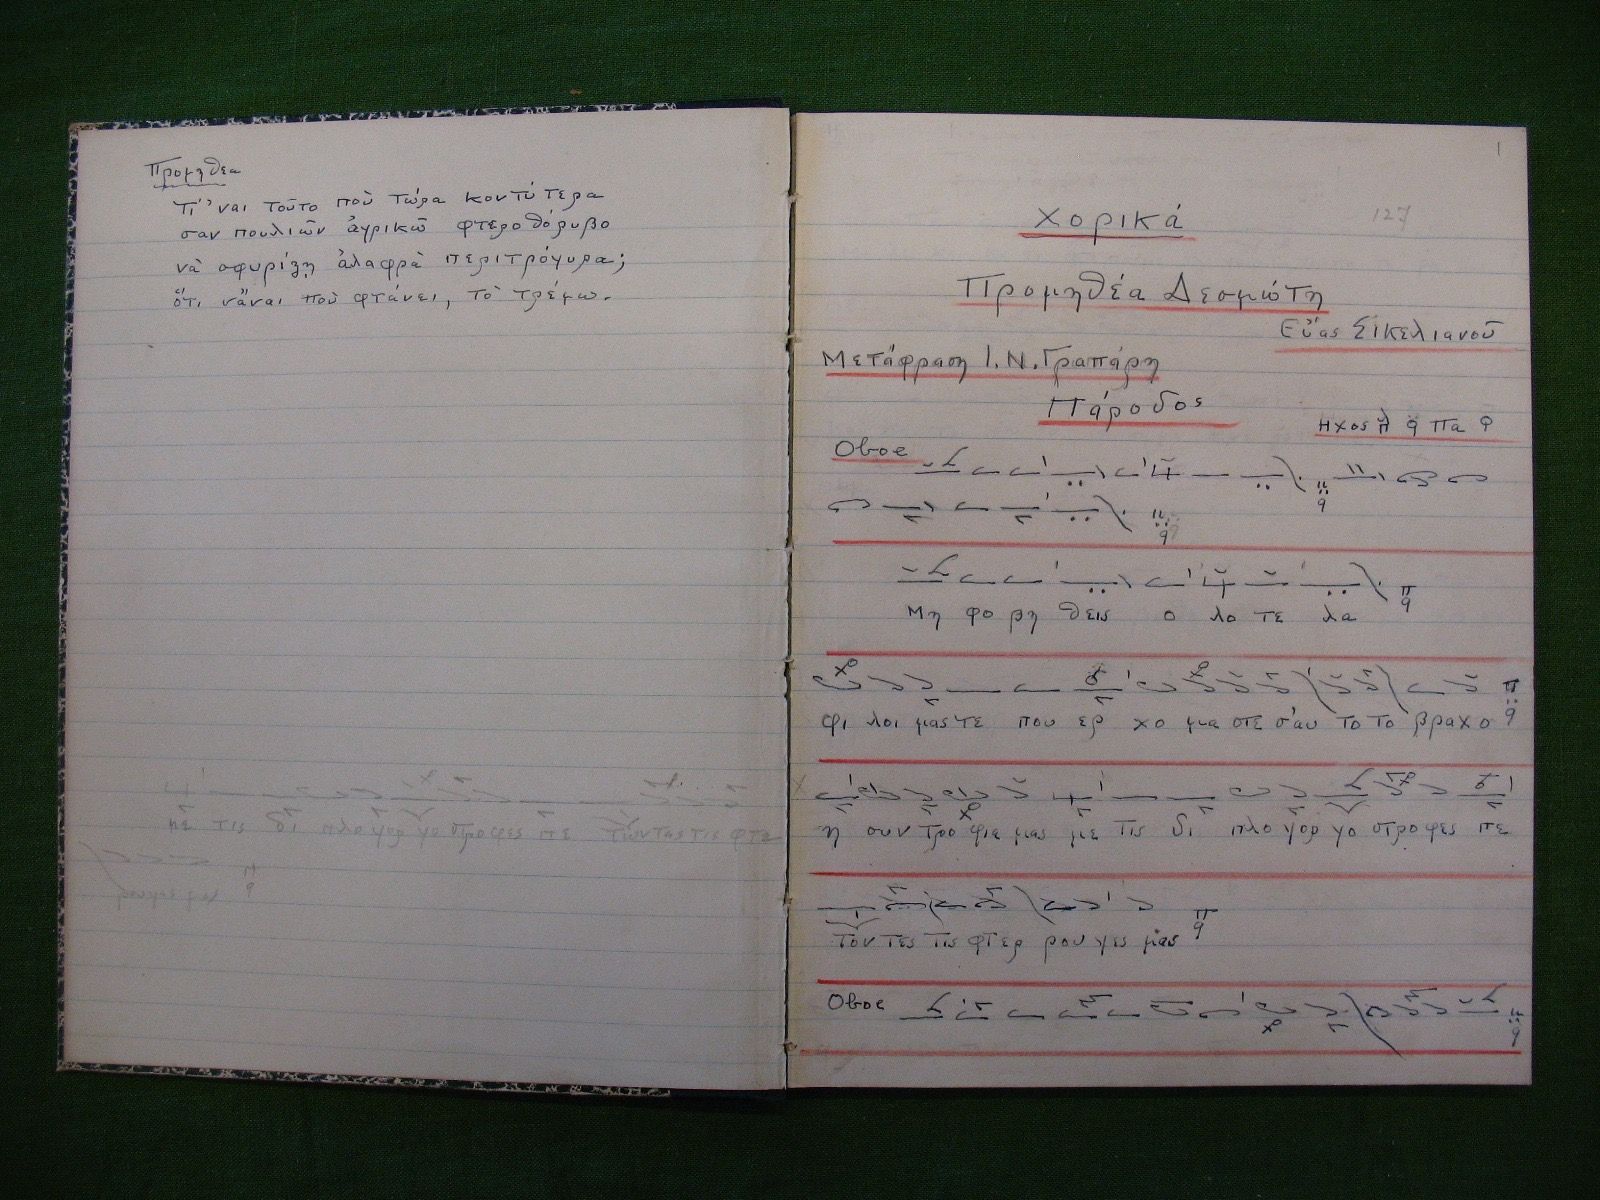 Προμηθέα
Τί 'ναι τοῦτο ποὺ τώρα κοντύτερα
σαν πουλιῶν ἀγρικῶ φτεροθόρυβο
νὰ σφυρίζη ἀλαφρὰ περιτρόγυρα;
ὅτι νἄναι ποὺ φτάνει, τὸ τρέμω.
πε τις δι πλο γορ γο στροφες πε τωντας τις φτε
1
127
Χορικά
Προμηθέα Δεσμώτη
Εὔας Σικελιανοῦ
Μετάφραση Ι. Ν. Γραπάρη
Πάροδος
Ηχος πλ q Πα
Οβοε
Μη φο βη θεις ο λο τε λα
φι λοι μαστε που ερ χο μα στε σ'αυ το το βραχο
η συν τρο φια μας με τις δι πλο γορ γο στροφες πε
τον τες τις φτερ ρου γες μας
Οβοε